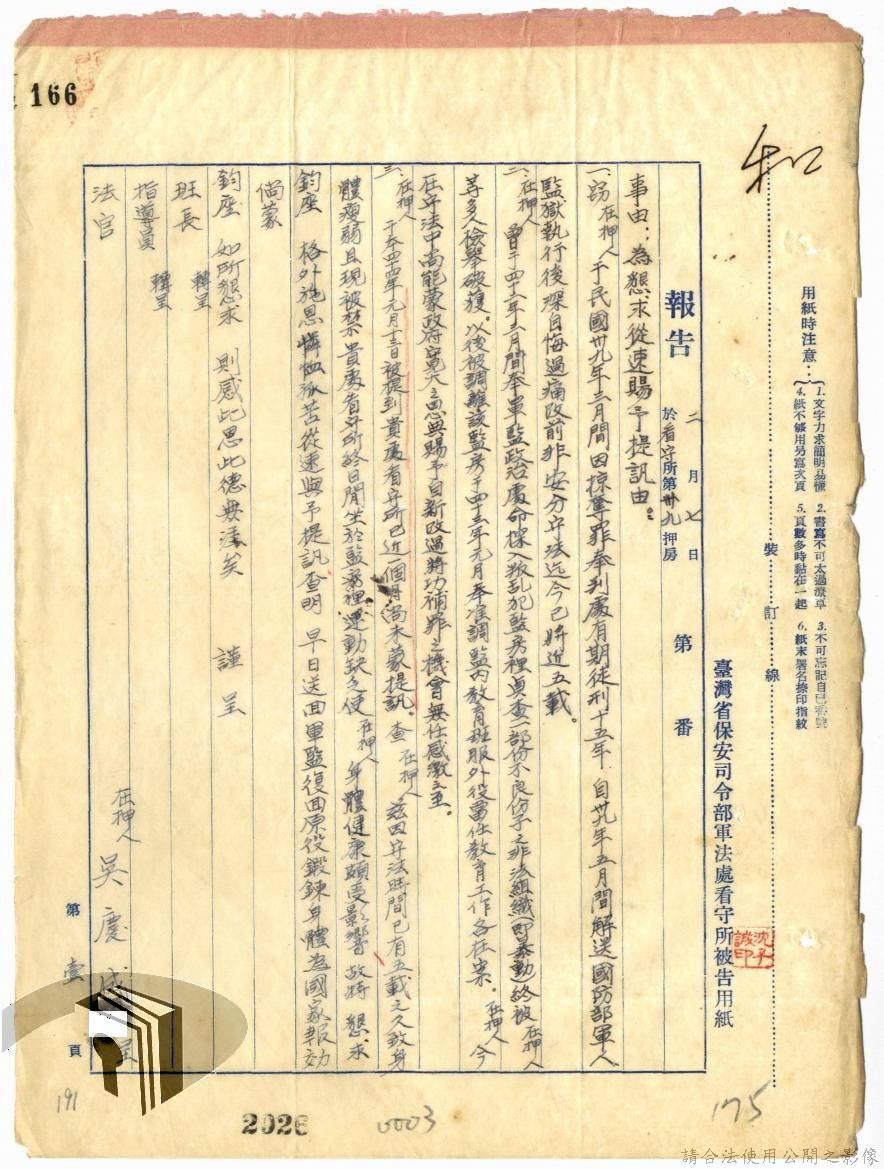 166
和
用紙時注意：
1. 文字力求簡明易懂
2. 書寫不可太過潦草
3. 不可忘記自己
4. 紙不够用另寫次頁
5. 頁數多時黏在一起
6. 紙末署名捺印指紋
裝訂線
臺灣省保安司令部軍法處看守所被告用紙
報告 二月七日 於看守所第卅九押房 第 番
事由：為懇求從速賜予提訊由。
一、竊在押人于民國卅九年三月間因掠奪罪奉判處有期徒刑十五年，自卅九年五月間解送國防部軍人
監獄執行後深自悔過痛改前非安分守法迄今已將近五載。
二、在押人曾于四十二年三月間奉軍監政治處命探入叛乱犯監房裡貞查一部份不良份子之非法組織即暴動終被在押人
等多人檢舉破獲。以後被調離該監房于四十三年元月奉准調監內教育班服外役當任教育工作各在案。在押人今
在守法中尚能蒙政府寬大之恩典賜予自新改過將功補罪之機會無任感激之至。
三、在押人于本四十四年元月十三日被提到貴處看守所已近一個月尚未蒙提訊。查在押人茲因守法時間已有五載之久致身
體瘦弱且現被禁貴處看守所終日閒坐於監房裡運動缺乏使在押人身體健康頗受影響故特懇求
鈞座 格外施恩憐恤孤苦從速與予提訊查明 早日送回軍監復回原役鍛鍊身體為國家報効
倘蒙
鈞座 如所懇求 則感此恩此德無涯矣 謹呈
班長 轉呈
指導員 轉呈
法官
在押人 吳慶成 呈
第壹頁
191
2026
0003
175
請合法使用公開之影像